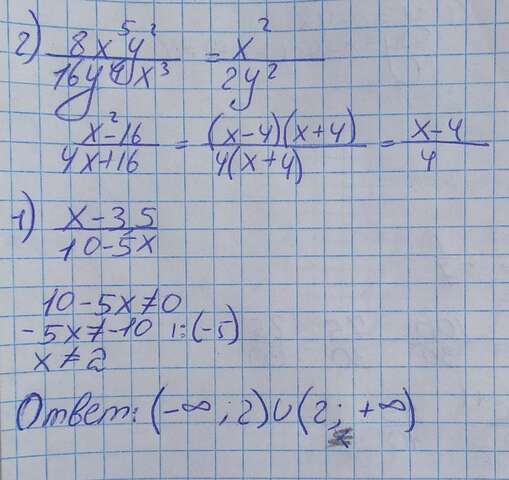 2) 8x⁵y² / 16y⁴x³ = x² / 2y²
x²-16 / 4x+16 = (x-4)(x+4) / 4(x+4) = x-4 / 4
1) x-3,5 / 10-5x
10-5x≠0
-5x≠-10 |:(-5)
x≠2
Ответ: (-∞;2)∪(2; +∞)